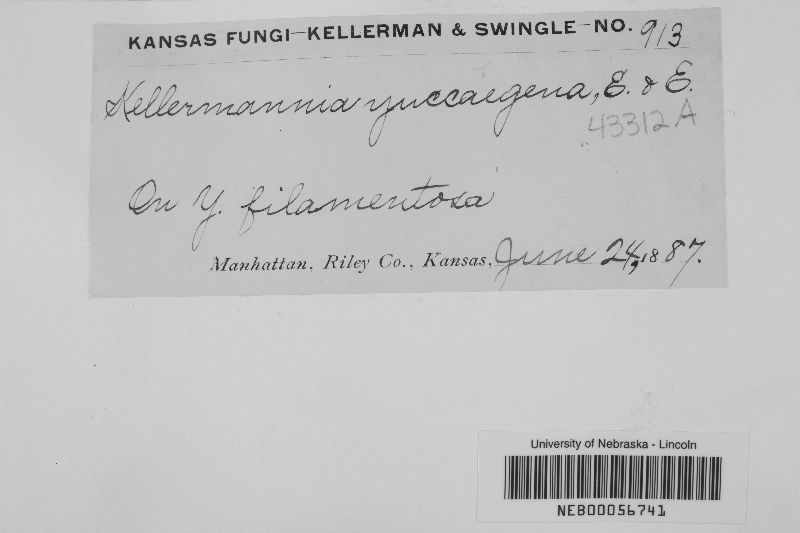 KANSAS FUNGI—KELLERMAN & SWINGLE—NO. 913
Kellermannia yuccaegena, E. & E.
43312A
On Y. filamentosa
Manhattan, Riley Co., Kansas, June 24, 1887.
University of Nebraska - Lincoln
NEB00056741